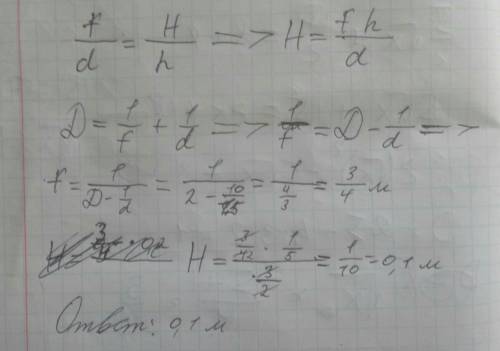 f/d = H/h => H = fh/d
D = 1/f + 1/d => 1/f = D - 1/d =>
f = 1/(D - 1/2) = 1/(2 - 10/15) = 1/(4/3) = 3/4 м
H = (3/42 · 1/5)/(3/2) = 1/10 = 0,1 м
Ответ: 0,1 м